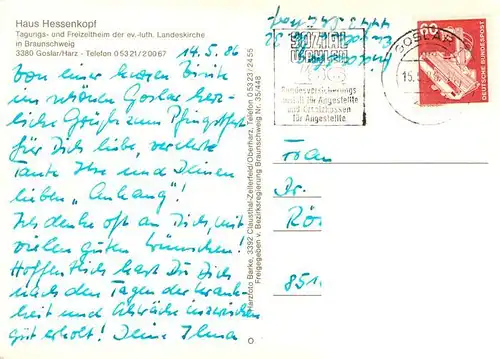 Haus Hessenkopf
Tagungs- und Freizeitheim der ev.-luth. Landeskirche
in Braunschweig
3380 Goslar/Harz - Telefon 0 53 21/2 00 67
14.5.86
Von einer kurzen
im schönen Goslar herz-
liche Grüße zum Pfingstfest
für Dich liebe, verehrte
Tante und Deinen
lieben "Anhang"!
Ich denke oft an Dich, mit
vielen guten Wünschen!
Hoffentlich hast Du Dich
nach den Tagen der Krank-
heit und inzwischen
gut erholt! Deine
Harzfoto Barke, 3392 Clausthal-Zellerfeld/Oberharz, Telefon 0 53 23/24 55
Freigegeben v. Bezirksregierung Braunschweig Nr. 35/448
SOZIAL
WAHLEN
Bundesversicherungs-
anstalt für Angestellte
und Ersatzkassen
für Angestellte
GOSLAR
15.5.
80
DEUTSCHE BUNDESPOST
Frau
Dr.
Rö
851